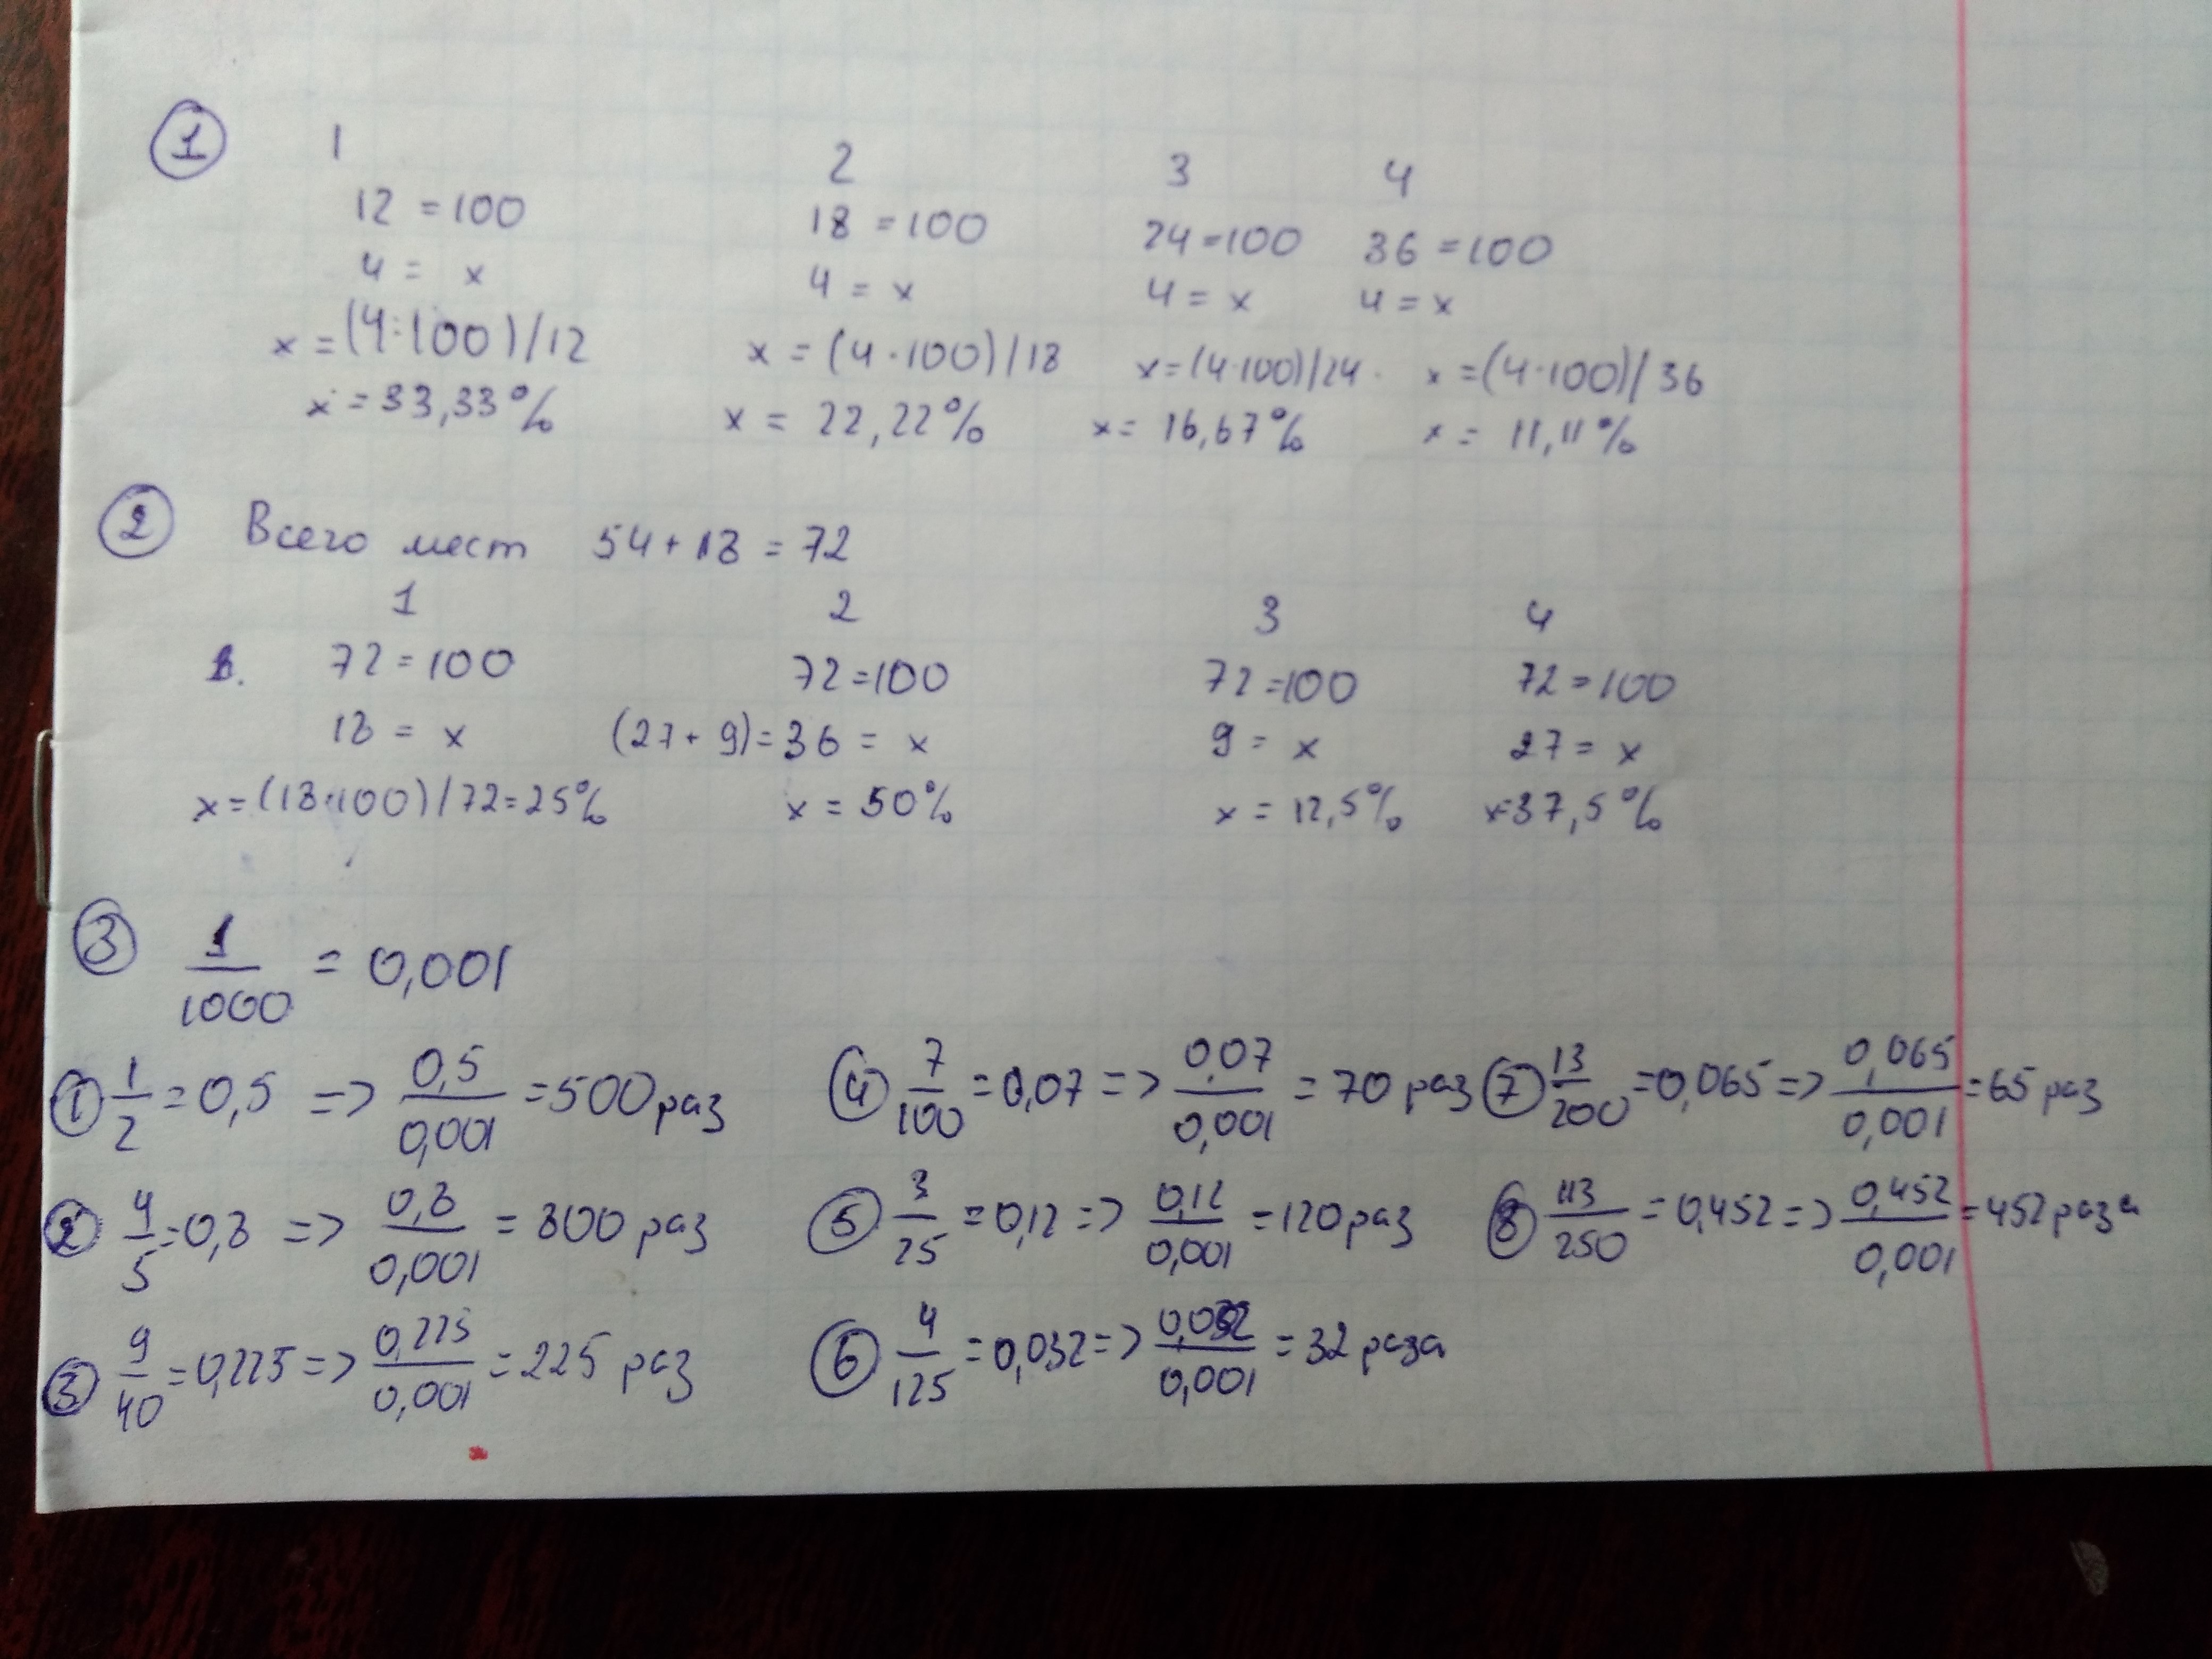 1 1 2 3 4
12 = 100 18 = 100 24 = 100 36 = 100
4 = x 4 = x 4 = x 4 = x
x = (4·100)/12 x = (4·100)/18 x = (4·100)/24 x = (4·100)/36
x = 33,33% x = 22,22% x = 16,67% x = 11,11%
2 Всего мест 54 + 18 = 72
1 2 3 4
1. 72 = 100 72 = 100 72 = 100 72 = 100
18 = x (27 + 9) = 36 = x 9 = x 27 = x
x = (18·100)/72 = 25% x = 50% x = 12,5% x = 37,5%
3 1/1000 = 0,001
1 1/2 = 0,5 => 0,5/0,001 = 500 раз 4 7/100 = 0,07 => 0,07/0,001 = 70 раз 7 13/200 = 0,065 => 0,065/0,001 = 65 раз
2 4/5 = 0,8 => 0,8/0,001 = 800 раз 5 3/25 = 0,12 => 0,12/0,001 = 120 раз 8 113/250 = 0,452 => 0,452/0,001 = 452 раза
3 9/40 = 0,225 => 0,225/0,001 = 225 раз 6 4/125 = 0,032 => 0,032/0,001 = 32 раза